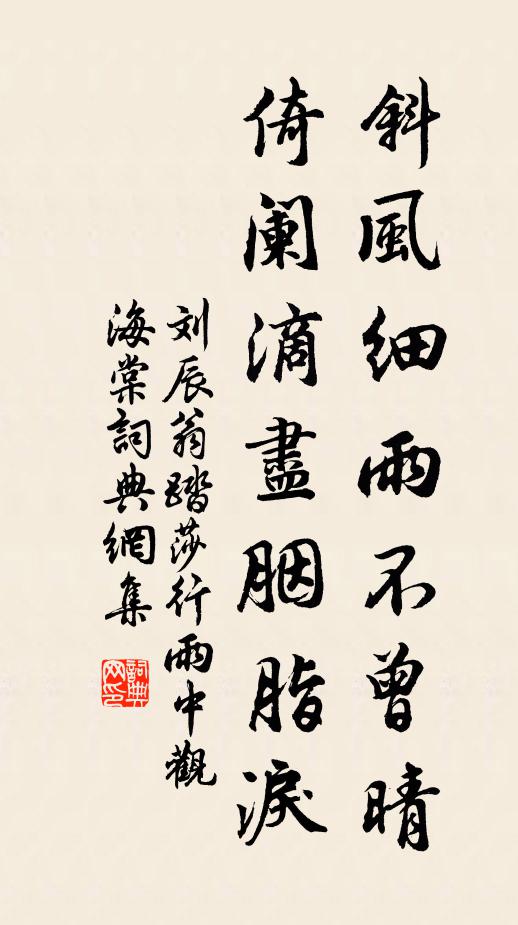 斜風細雨不曾晴
倚阑滴盡胭脂淚
刘辰翁踏莎行雨中觀
海棠詞典網集
詞典
网印